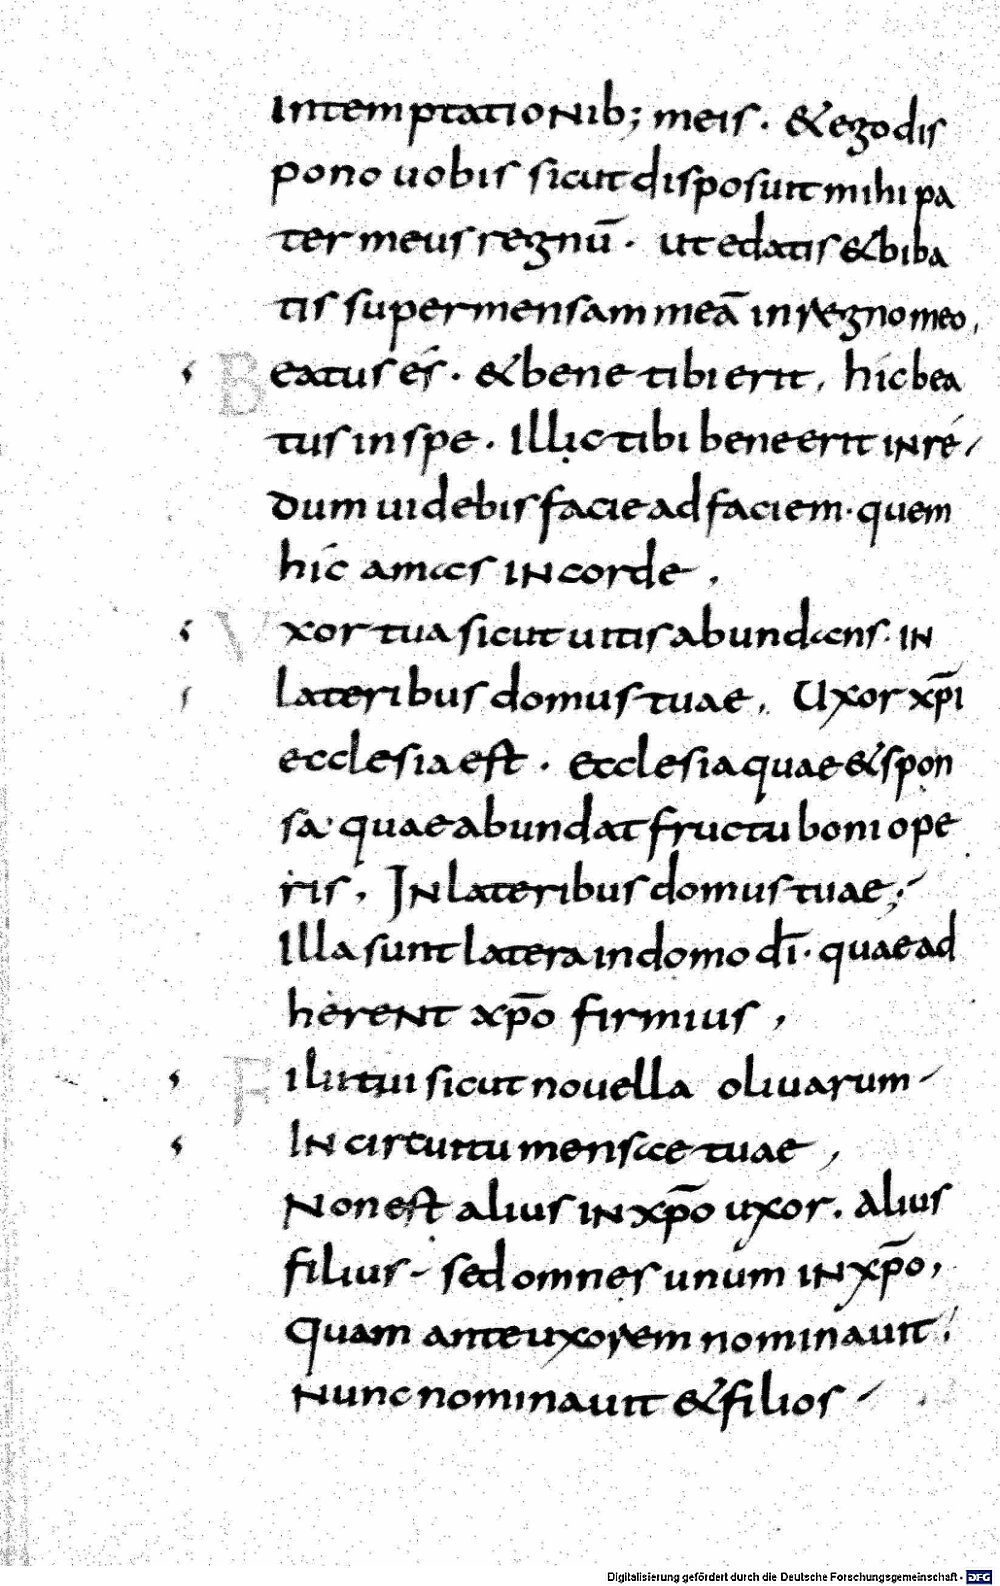 Intemptationib; meis. & ego dis
pono uobis sicut disposuit mihi pa
ter meus regnū. ut edatis & biba
tis super mensam meā in regno meo,
Beatus és. & bene tibi erit, híc bea
tus in spe. Illic tibi bene erit in ré,
dum uidebis facie ad faciem. quem
híc amas in corde,
Vxor tua sicut uitis abundans. in
lateribus domus tuae, Uxor xp̄i
ecclesia est. ecclesia quae & spon
sa. quae abundat fructu boni ope
ris, In lateribus domus tuae;
Illa sunt latera in domo dī. quae ad
herent xp̄o firmius,
Filii tui sicut nouella oliuarum
In circuitu mensae tuae,
Non est alius in xp̄o uxor. alius
filius - sed omnes unum in xp̄o,
Quam ante uxorem nominauit,
Nunc nominauit & filios
Digitalisierung gefördert durch die Deutsche Forschungsgemeinschaft - DFG